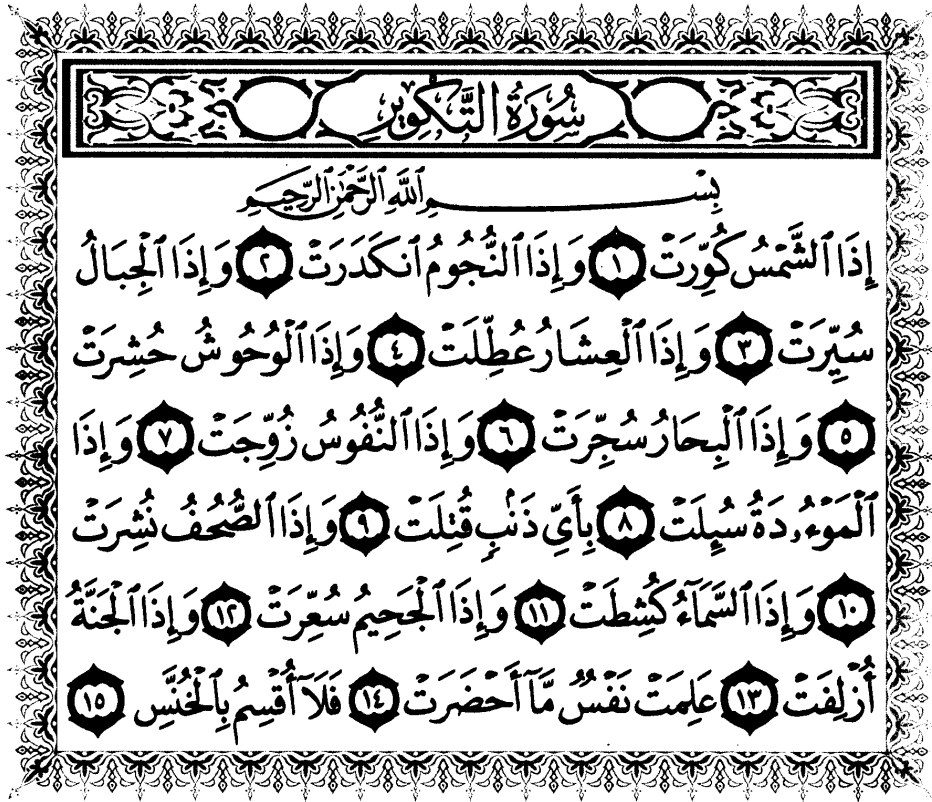 سُورَةُ التَّكْوِيرِ
بِسْمِ ٱللَّهِ ٱلرَّحْمَٰنِ ٱلرَّحِيمِ
إِذَا ٱلشَّمْسُ كُوِّرَتْ ١ وَإِذَا ٱلنُّجُومُ ٱنكَدَرَتْ ٢ وَإِذَا ٱلْجِبَالُ
سُيِّرَتْ ٣ وَإِذَا ٱلْعِشَارُ عُطِّلَتْ ٤ وَإِذَا ٱلْوُحُوشُ حُشِرَتْ
٥ وَإِذَا ٱلْبِحَارُ سُجِّرَتْ ٦ وَإِذَا ٱلنُّفُوسُ زُوِّجَتْ ٧ وَإِذَا
ٱلْمَوْءُۥدَةُ سُئِلَتْ ٨ بِأَيِّ ذَنۢبٍ قُتِلَتْ ٩ وَإِذَا ٱلصُّحُفُ نُشِرَتْ
١٠ وَإِذَا ٱلسَّمَآءُ كُشِطَتْ ١١ وَإِذَا ٱلْجَحِيمُ سُعِّرَتْ ١٢ وَإِذَا ٱلْجَنَّةُ
أُزْلِفَتْ ١٣ عَلِمَتْ نَفْسٌ مَّآ أَحْضَرَتْ ١٤ فَلَآ أُقْسِمُ بِٱلْخُنَّسِ ١٥